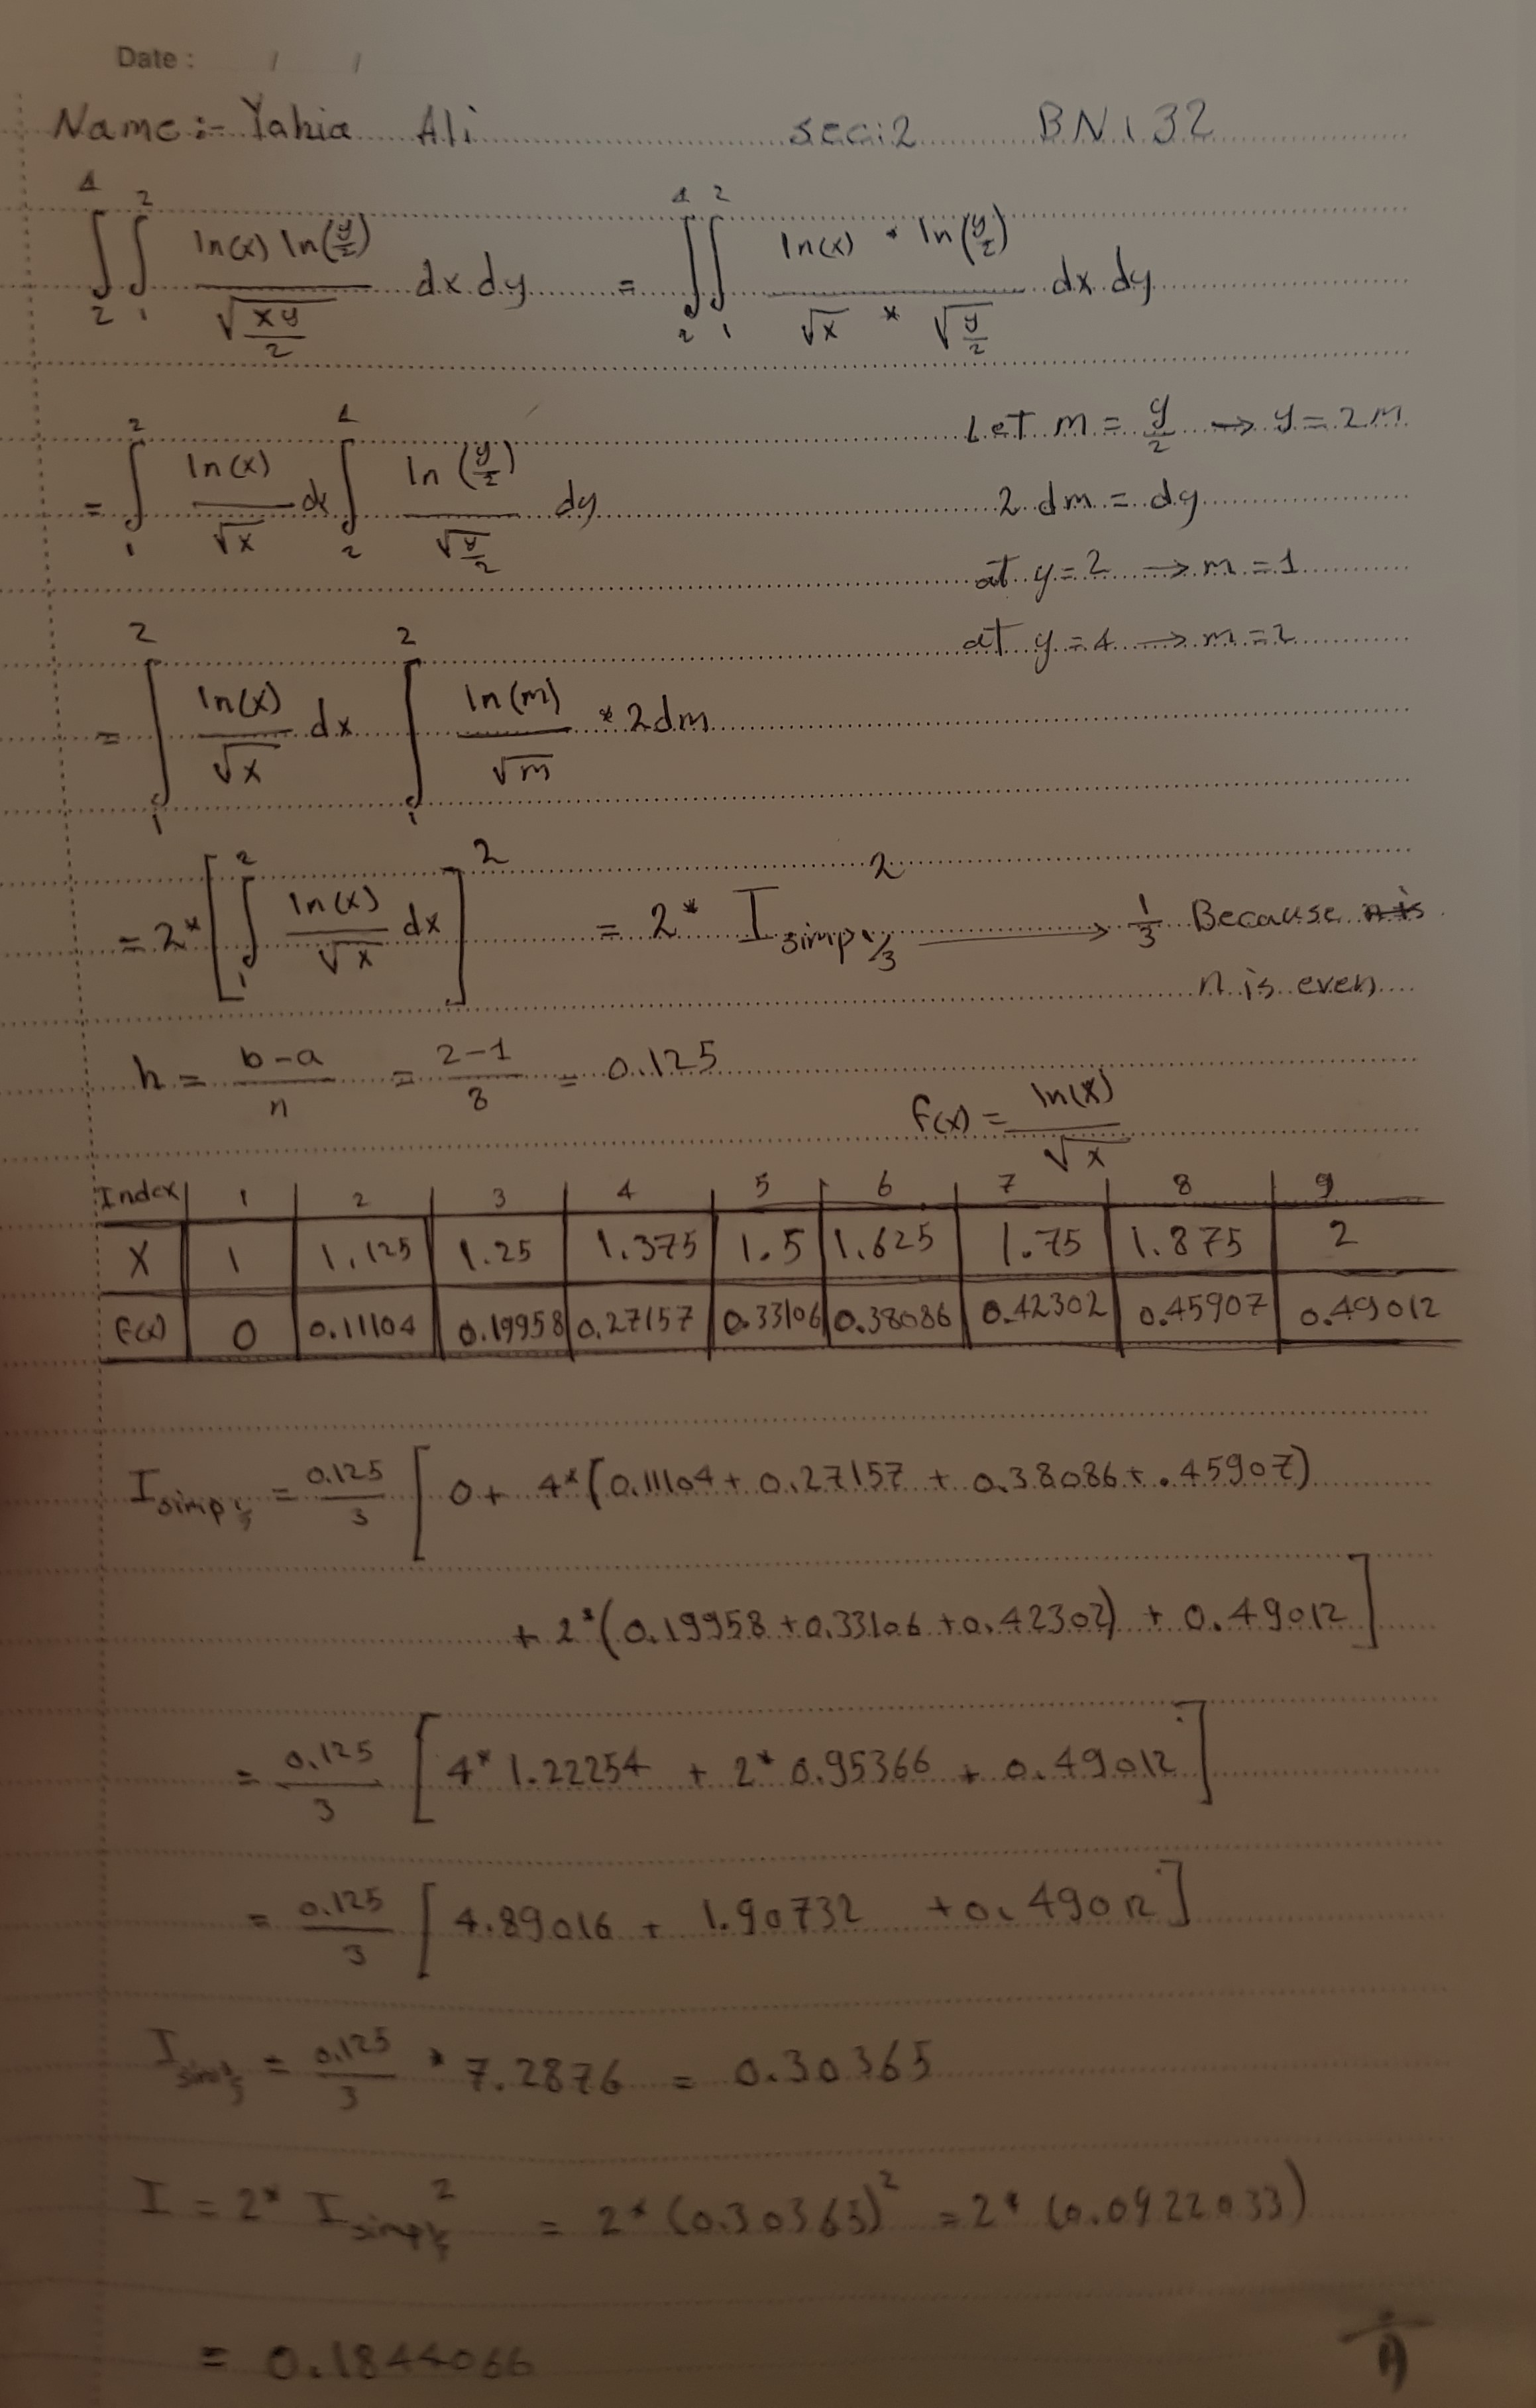 Date : / /
Name:- Yahia Ali sec:2 BN: 32
∫₂⁴ ∫₁² ln(x) ln(y/2) / √(xy/2) dx dy = ∫₂⁴ ∫₁² ln(x) * ln(y/2) / (√x * √(y/2)) dx dy
Let m = y/2 → y = 2m
= ∫₁² ln(x)/√x dx ∫₂⁴ ln(y/2)/√(y/2) dy
2 dm = dy
at y = 2 → m = 1
at y = 4 → m = 2
= ∫₁² ln(x)/√x dx ∫₁² ln(m)/√m * 2dm
= 2* [∫₁² ln(x)/√x dx]² = 2* I² simp 1/3 → 1/3 Because n is
n is even
h = (b-a)/n = (2-1)/8 = 0.125
f(x) = ln(x)/√x
Index 1 2 3 4 5 6 7 8 9
X 1 1.125 1.25 1.375 1.5 1.625 1.75 1.875 2
f(x) 0 0.11104 0.19958 0.27157 0.33106 0.38086 0.42302 0.45907 0.49012
I simp 1/3 = 0.125/3 [0 + 4*(0.11104 + 0.27157 + 0.38086 + .45907)
+ 2*(0.19958 + 0.33106 + 0.42302) + 0.49012]
= 0.125/3 [4* 1.22254 + 2* 0.95366 + 0.49012]
= 0.125/3 [4.89016 + 1.90732 + 0.49012]
I simp 1/3 = 0.125/3 * 7.2876 = 0.30365
I = 2* I² simp 1/3 = 2* (0.30365)² = 2* (0.0922033)
= 0.1844066